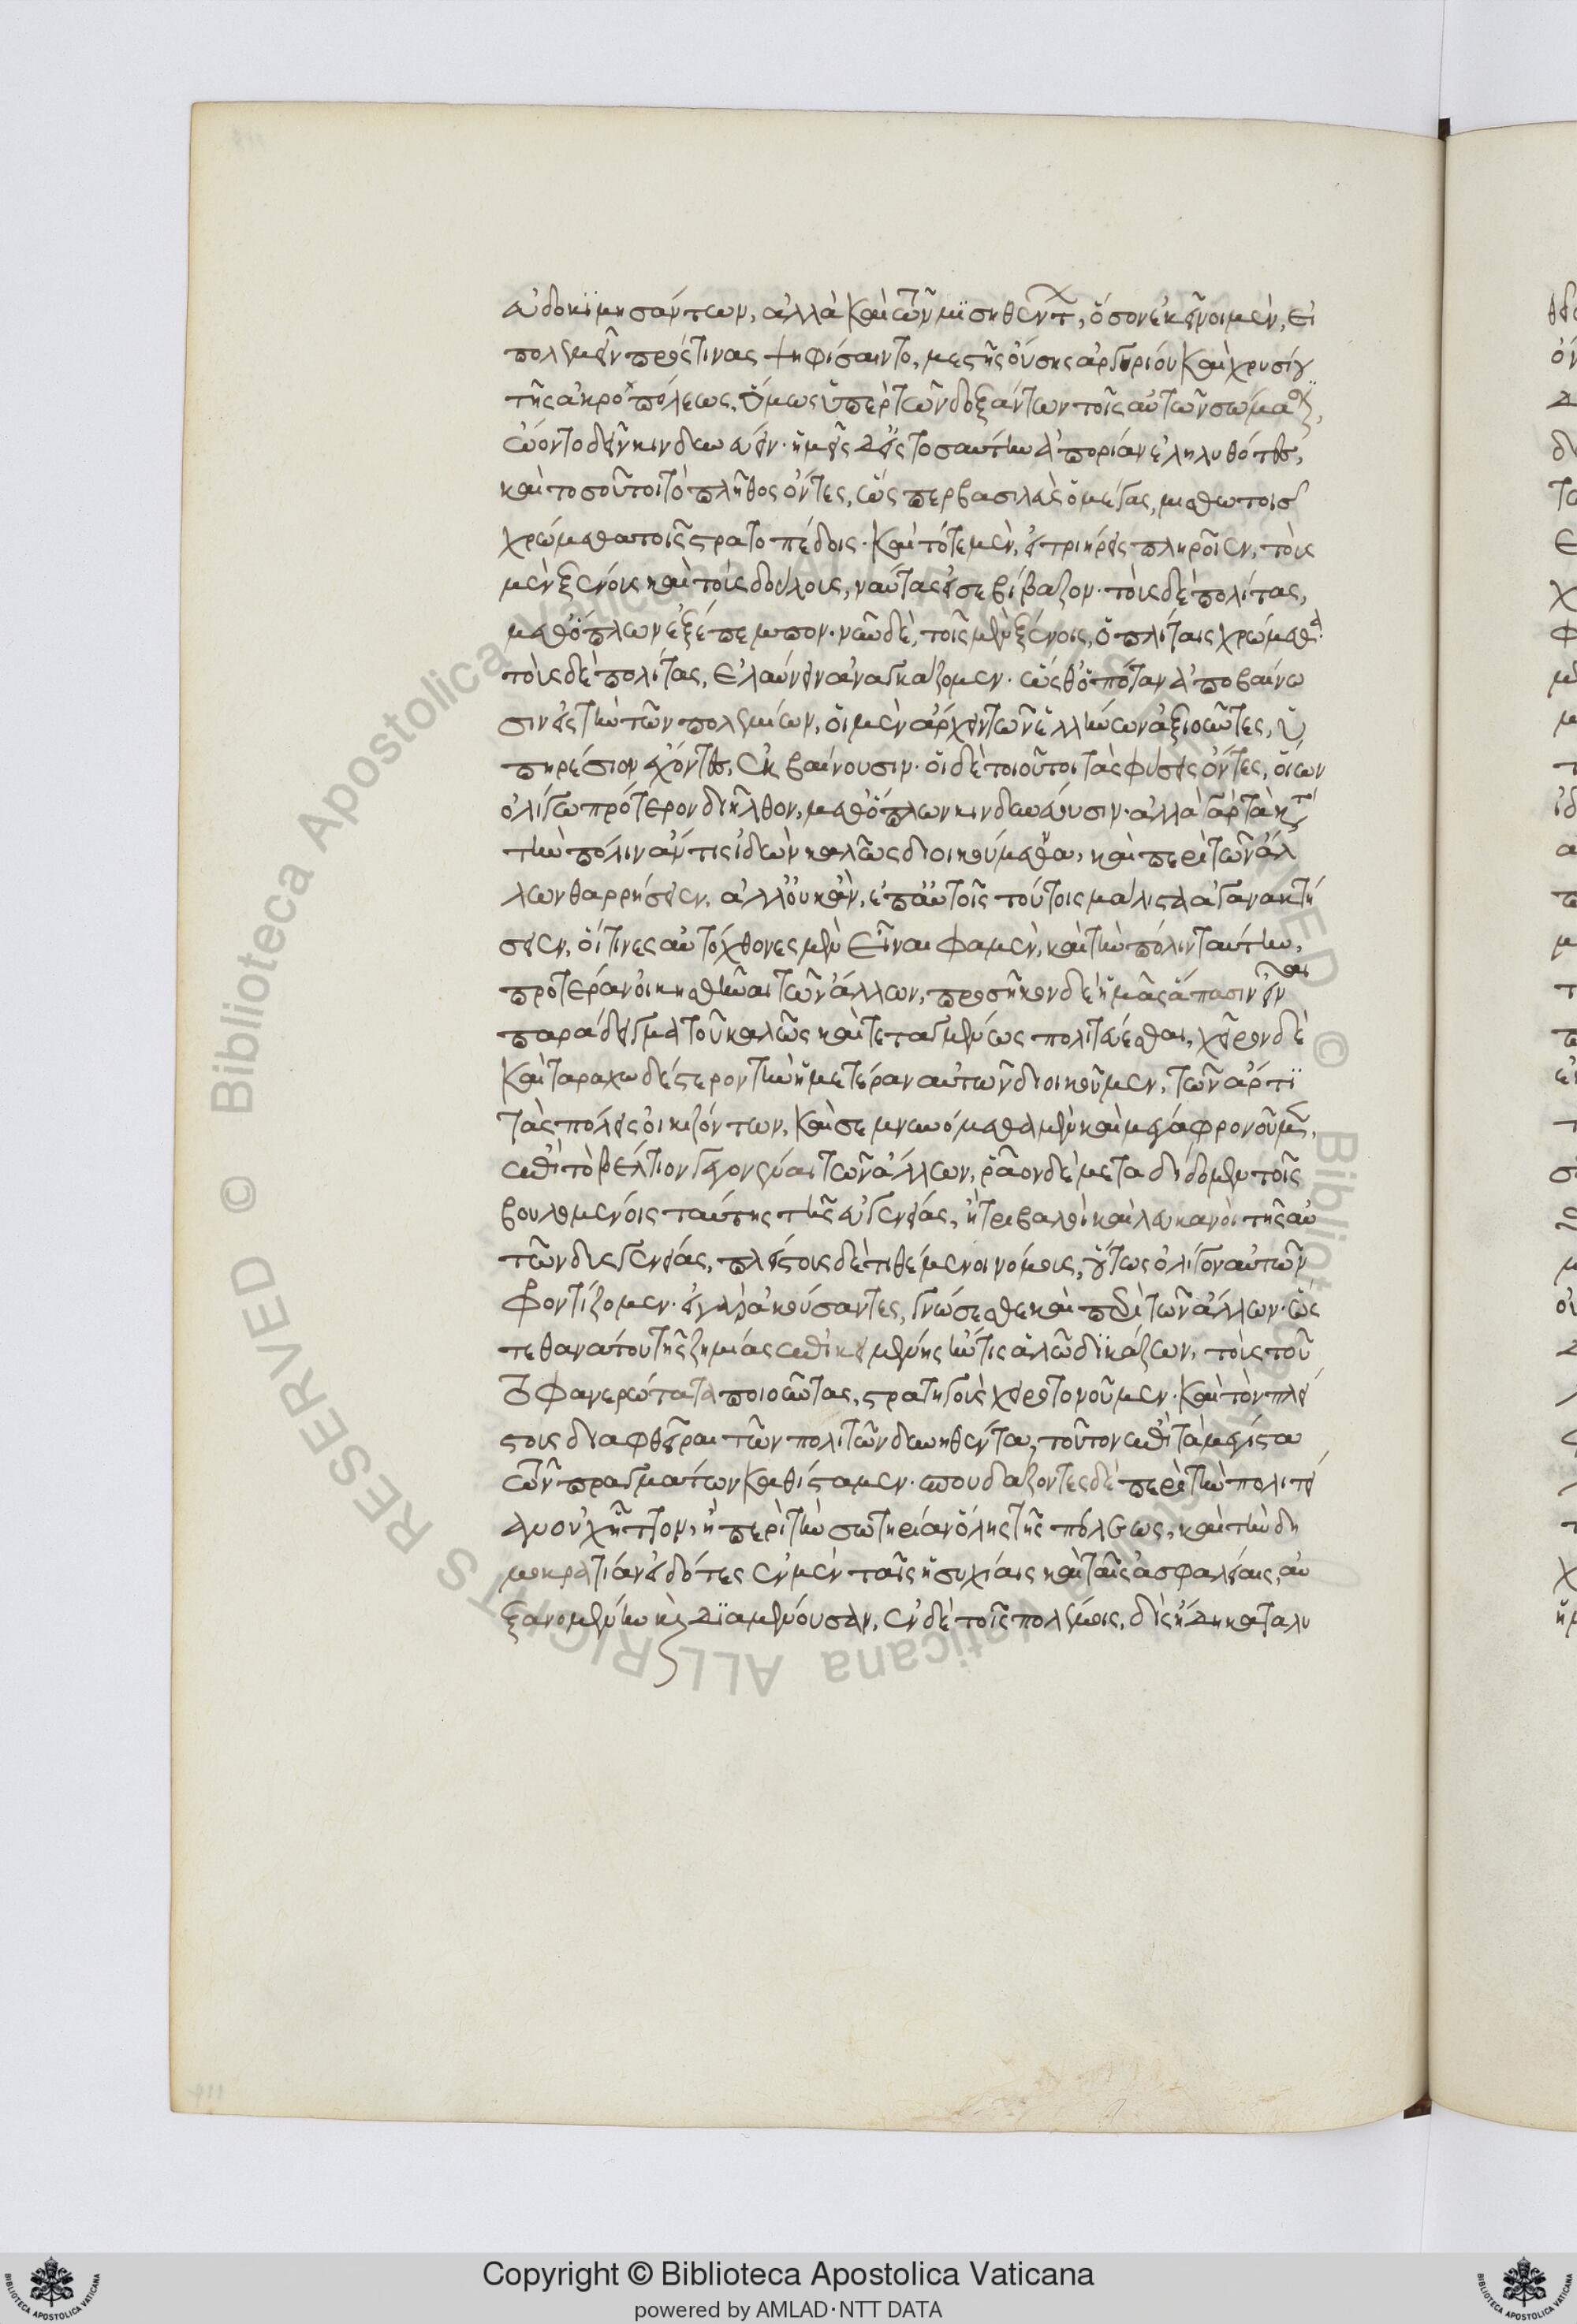 εὐδοκϊμησάντων, ἀλλὰ καὶ τῶν μϊσηθέντων, ὅσον ἐκεῖνοι μὲν, εἰ
πολεμεῖν πρός τινας ψηφίσαιντο, μεστῆς οὔσης ἀργυρίου καὶ χρυσίου
τῆς ἀκροπόλεως, ὅμως ὑπὲρ τῶν δοξάντων τοῖς αὐτῶν σώμασιν,
ᾤοντο δεῖν κινδυνεύειν· ἡμεῖς δ' εἰς τοσαύτην ἀπορίαν ἐληλυθότες,
καὶ τοσοῦτοι τὸ πλῆθος ὄντες, ὥσπερ βασιλεὺς ὁ μέγας, μισθωτοῖς
χρώμεθα τοῖς στρατοπέδοις. καὶ τότε μὲν, εἰ τριήρεις πληροῖεν, τοὺς
μὲν ξένους καὶ τοὺς δούλους, ναύτας εἰσεβίβαζον· τοὺς δὲ πολίτας,
μεθ' ὅπλων ἐξέπεμπον· νῦν δὲ, τοῖς μὲν ξένοις, ὁπλίταις χρώμεθα·
τοὺς δὲ πολίτας, ἐλαύνειν ἀναγκάζομεν· ὥσθ' ὁπόταν ἀποβαίνω
σιν εἰς τὴν τῶν πολεμίων, οἱ μὲν ἄρχειν τῶν ἑλλήνων ἀξιοῦντες, ὑ
πηρέσιον ἔχοντες, ἐκβαίνουσιν· οἱ δὲ τοιοῦτοι τὰς φύσεις ὄντες, οἵων
ὀλίγω πρότερον διῆλθον, μεθ' ὅπλων κινδυνεύουσιν· ἀλλὰ γὰρ τὰ κατὰ
τὴν πόλιν ἄν τις ἰδὼν καλῶς διοικούμενα, καὶ περὶ τῶν ἄλ
λων θαρρήσειεν, ἀλλ' οὐκ ἂν, ἐπ' αὐτοῖς τούτοις μάλιστ' ἀγανακτή
σειεν, οἵτινες αὐτόχθονες μὲν εἶναι φαμὲν, καὶ τὴν πόλιν ταύτην,
προτέραν οἰκισθῆναι τῶν ἄλλων, προσῆκον δὲ ἡμᾶς ἅπασιν εἶναι
παράδειγμα τοῦ καλῶς καὶ τεταγμένως πολιτεύεσθαι, χεῖρον δὲ
καὶ ταραχωδέστερον τὴν ἡμετέραν αὐτῶν διοικοῦμεν, τῶν ἄρτϊ
τὰς πόλεις οἰκιζόντων, καὶ σεμνυνόμεθα μὲν καὶ μέγα φρονοῦμεν,
ἐπὶ τὸ βέλτιον γεγονέναι τῶν ἄλλων, ῥᾶον δὲ μεταδίδομεν τοῖς
βουλομένοις ταύτης τῆς εὐγενείας, ἢ τριβαλοὶ καὶ λευκανοὶ τῆς αὑ
τῶν δυσγενείας, πλείστους δὲ τιθέμενοι νόμους, οὕτως ὀλίγον αὐτῶν
φροντίζομεν· ἓν γὰρ ἀκούσαντες, γνώσεσθε καὶ περὶ τῶν ἄλλων· ὥς
τε θανάτου τῆς ζημίας ἐπικειμένης ἤν τις ἁλῶ δϊκάζων, τοὺς τοῦ
το φανερώτατα ποιοῦντας, στρατηγοὺς χειροτονοῦμεν· καὶ τὸν πλεί
στους διαφθεῖραι τῶν πολιτῶν δυνηθέντα, τοῦτον ἐπὶ τὰ μέγιστα
τῶν πραγμάτων καθίσταμεν· σπουδάζοντες δὲ περὶ τὴν πολιτεί
αν οὐχ ἧττον, ἢ περὶ τὴν σωτηρίαν ὅλης τῆς πόλεως, καὶ τὴν δη
μοκρατίαν εἰδότες ἐν μὲν ταῖς ἡσυχίαις καὶ ταῖς ἀσφαλείαις, αὐ
ξανομένην καὶ δϊαμένουσαν, ἐν δὲ τοῖς πολέμοις, δὶς ἤδη καταλυ
Copyright © Biblioteca Apostolica Vaticana
powered by AMLAD·NTT DATA